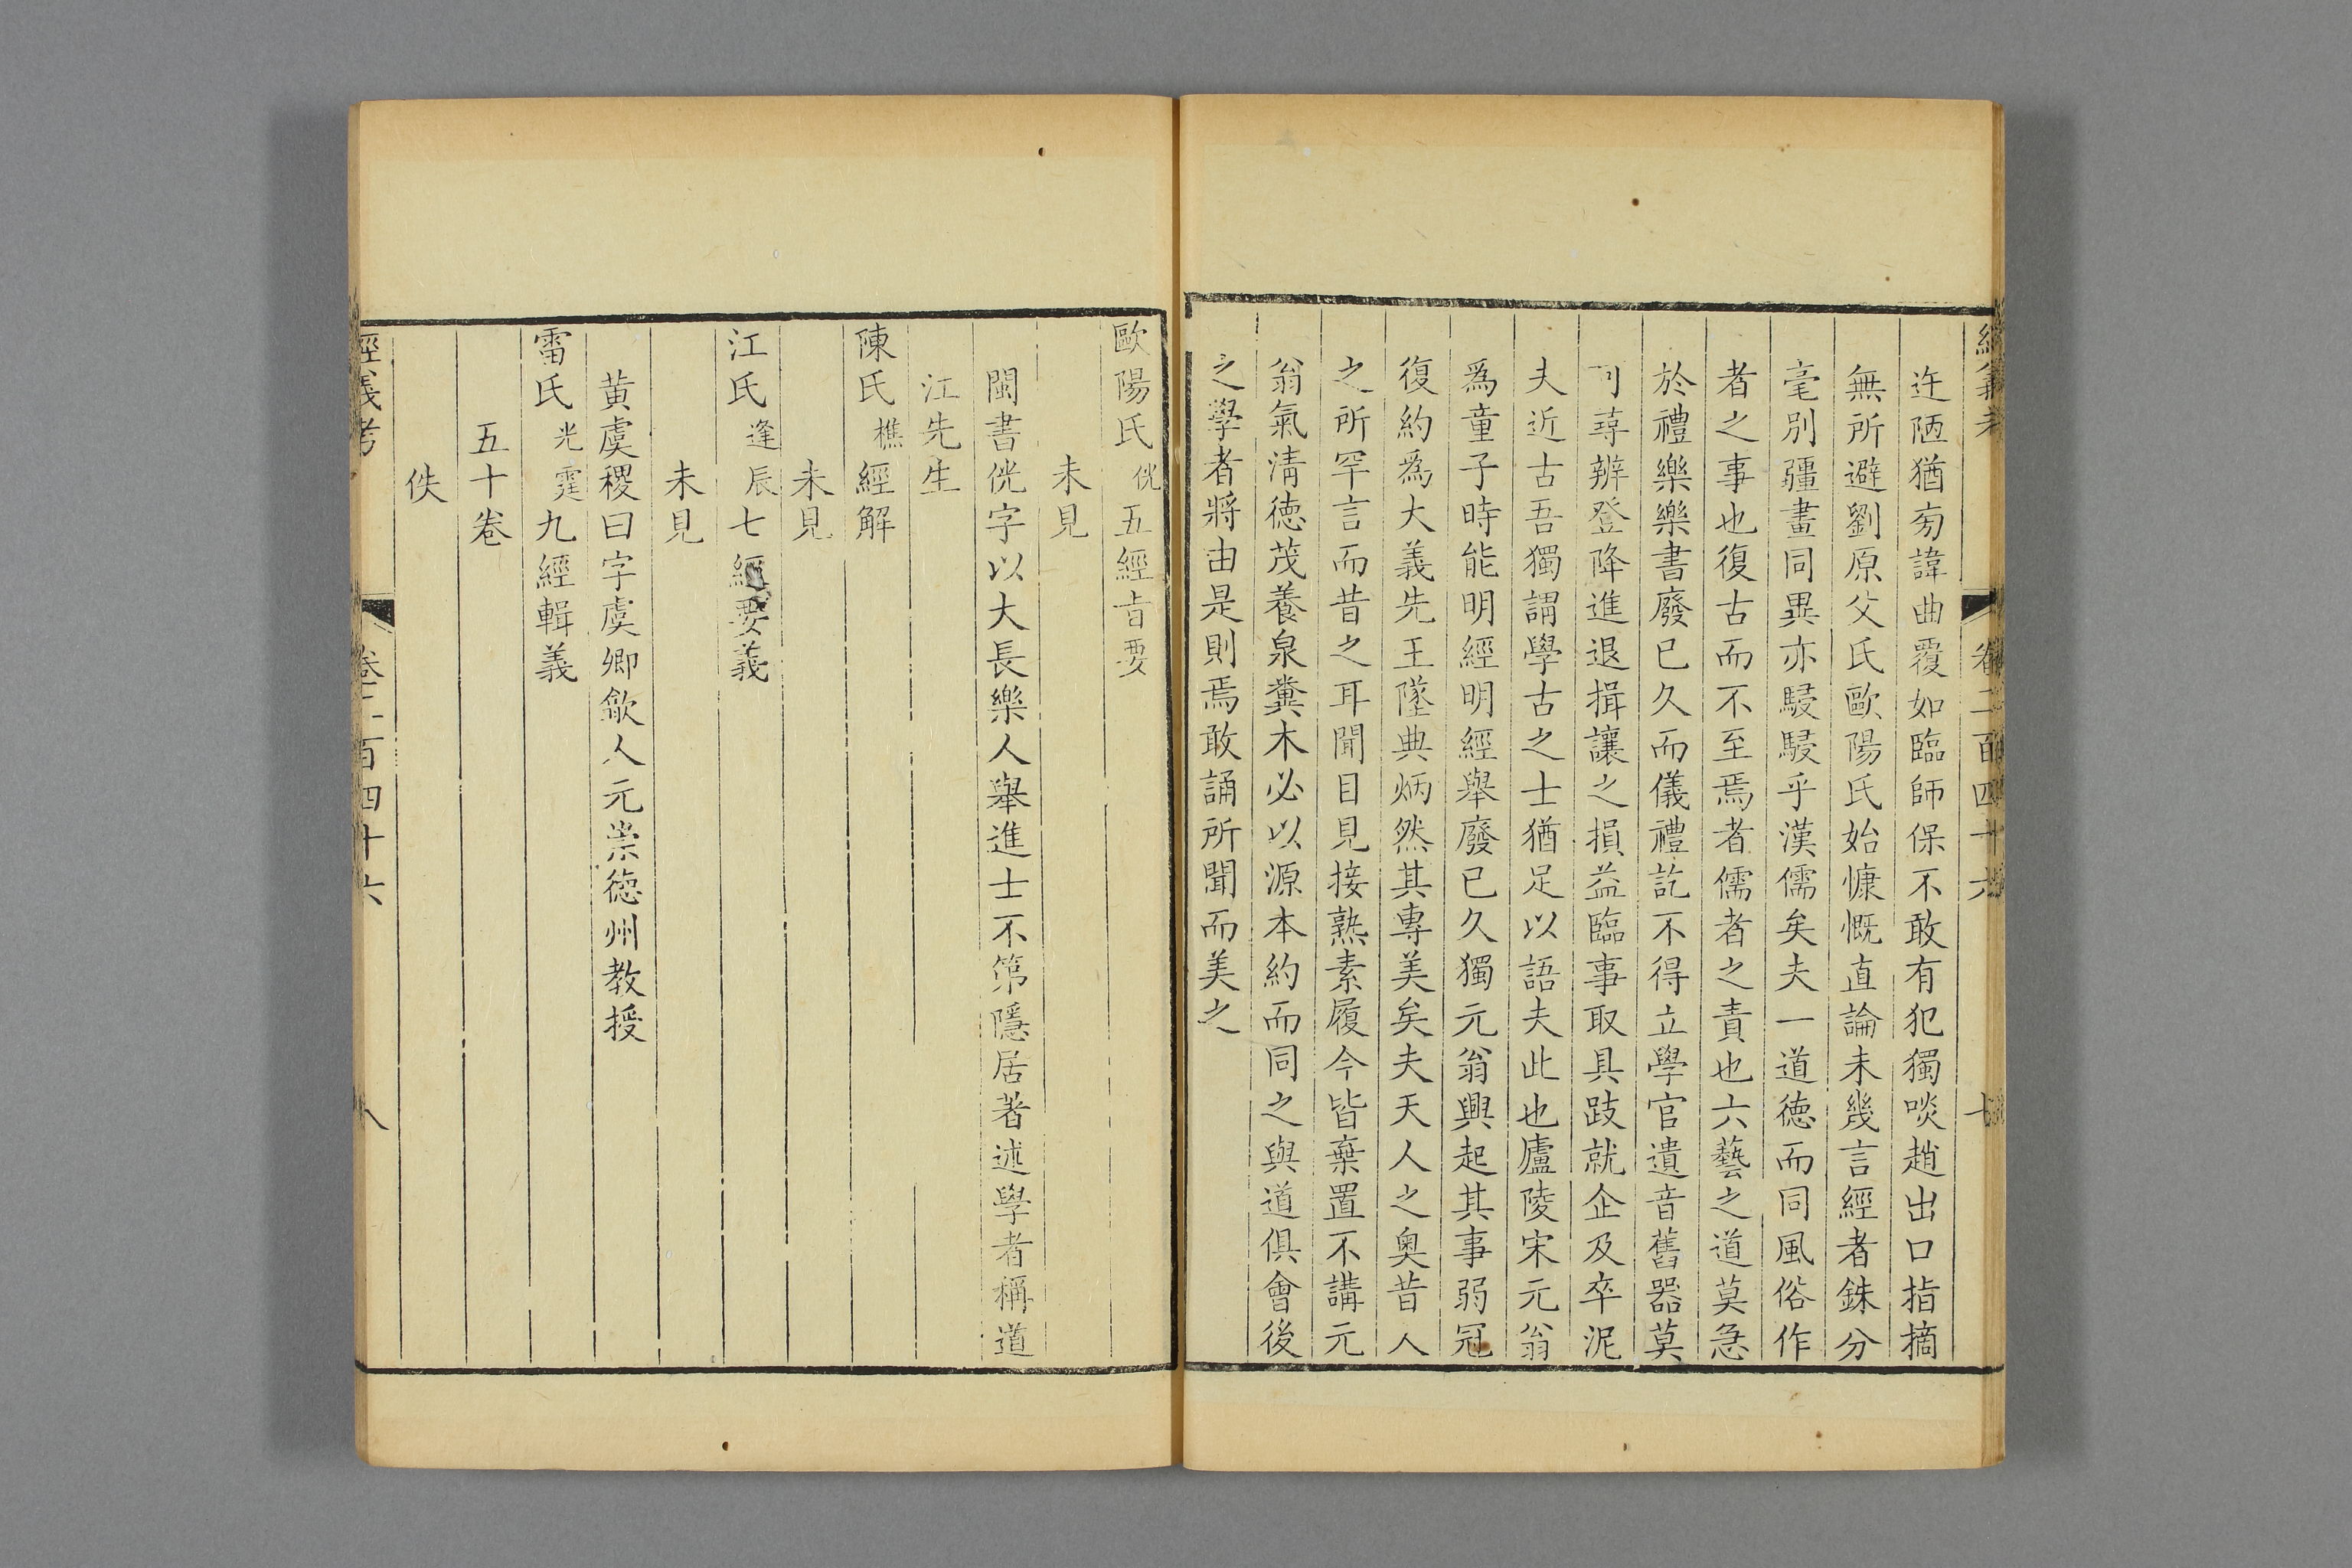 經義考 卷二百四十六 七
迕陋猶㫄諱曲覆如臨師保不敢有犯獨啖趙出口指摘
無所避劉原父氏歐陽氏始慷慨直論未幾言經者銖分
毫別疆畫同異亦駸駸乎漢儒矣夫一道徳而同風俗作
者之事也復古而不至焉者儒者之責也六藝之道莫急
於禮樂樂書廢已久而儀禮訖不得立學官遺音舊器莫
可尋辨登降進退揖讓之損益臨事取具跂就企及卒泥
夫近古吾獨謂學古之士猶足以語夫此也廬陵宋元翁
爲童子時能明經明經舉廢已久獨元翁興起其事弱冠
復約爲大義先王墜典炳然其專美矣夫天人之奧昔人
之所罕言而昔之耳聞目見接熟素履今皆棄置不講元
翁氣淸徳茂養泉糞木必以源本約而同之與道俱會後
之學者將由是則焉敢誦所聞而美之
歐陽氏侊五經旨要
未見
閩書侊字以大長樂人舉進士不第隱居著述學者稱道
江先生
陳氏樵經解
未見
江氏逢辰七經要義
未見
黄虞稷曰字虞卿歙人元崇徳州教授
雷氏光霆九經輯義
五十卷
佚
經義考 卷二百四十六 八